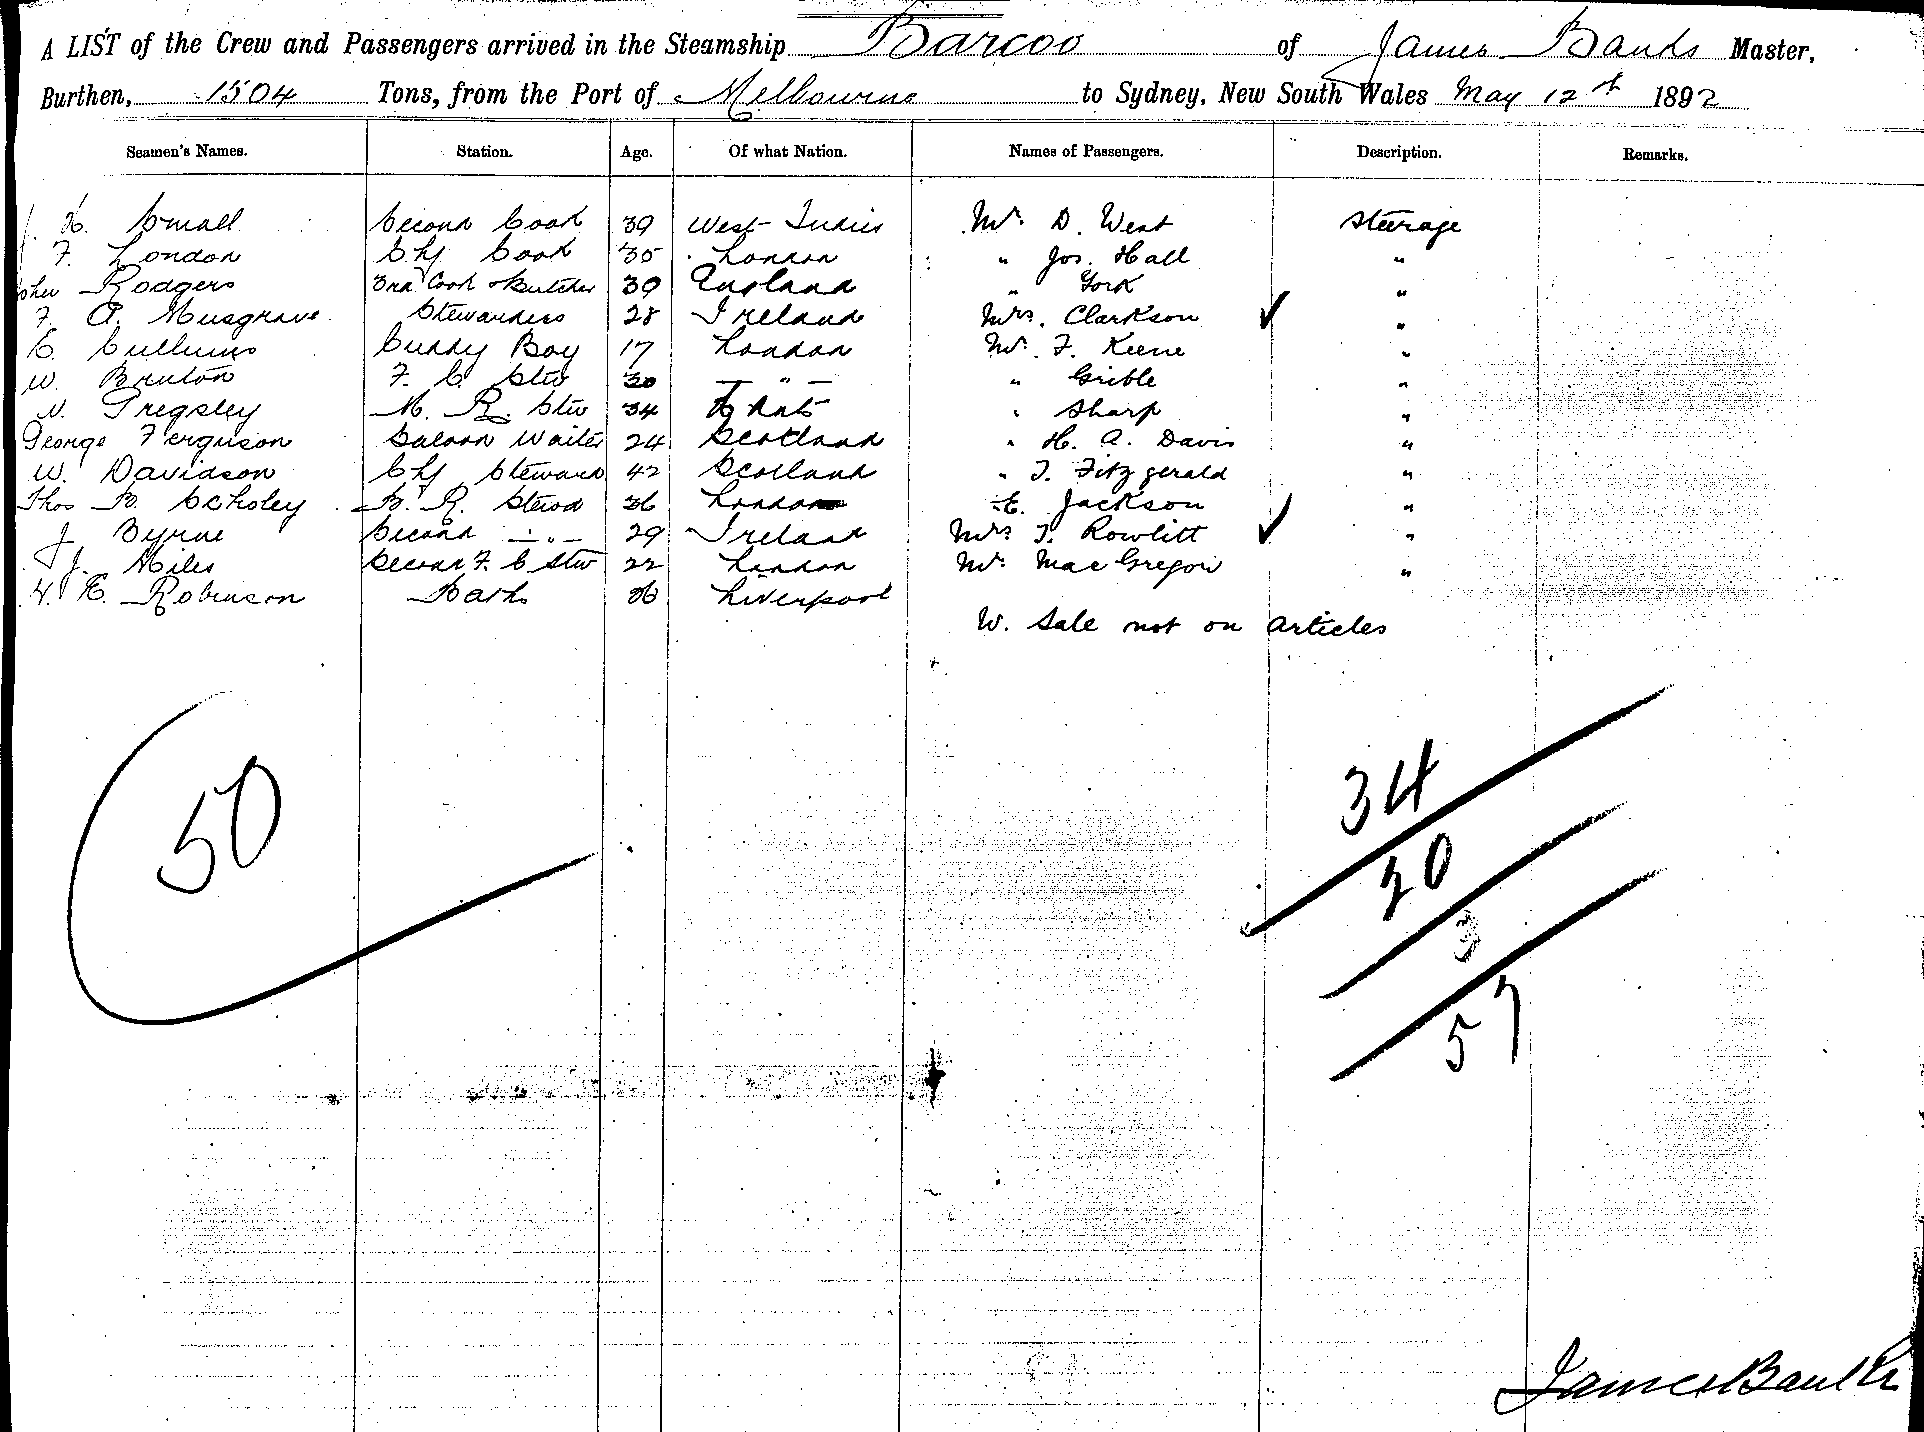 A LIST of the Crew and Passengers arrived in the Steamship Barcoo of James Banks Master,
Burthen, 1504 Tons, from the Port of Melbourne to Sydney, New South Wales May 12th 1892
Seamen's Names. Station. Age. Of what Nation. Names of Passengers. Description. Remarks.
H. Small Second Cook 39 West Indies Mr. D. West Steerage
F. London Chf Cook 35 London " Jos. Hall "
Rodgers 3rd Cook & Butcher 39 England " York "
F. A. Musgrave Stewardess 28 Ireland Mrs. Clarkson ✓ "
C. Cullums Cuddy Boy 17 London Mr. F. Keene "
W. Bruton F. C. Stw 30 — " — " Grible "
W. Pregsley M. R. Stw 34 " Sharp "
George Ferguson Saloon Waiter 24 Scotland " H. A. Davis "
W. Davidson Chf Steward 42 Scotland " T. Fitzgerald "
Thos B. Scholey B. R. Stewd 36 London E. Jackson "
J. Byrne Second — " — 29 Ireland Mrs T. Rowlitt ✓ "
J. Hiles Second F. C Stw 22 London Mr. MacGregor "
H. E. Robinson Baths 36 Liverpool
W. Sale not on articles
34
50
20
3
57
James Banks